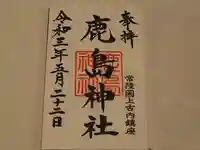 奉拝
常陸國上古内鎮座
鹿島神社
令和三年五月二十二日